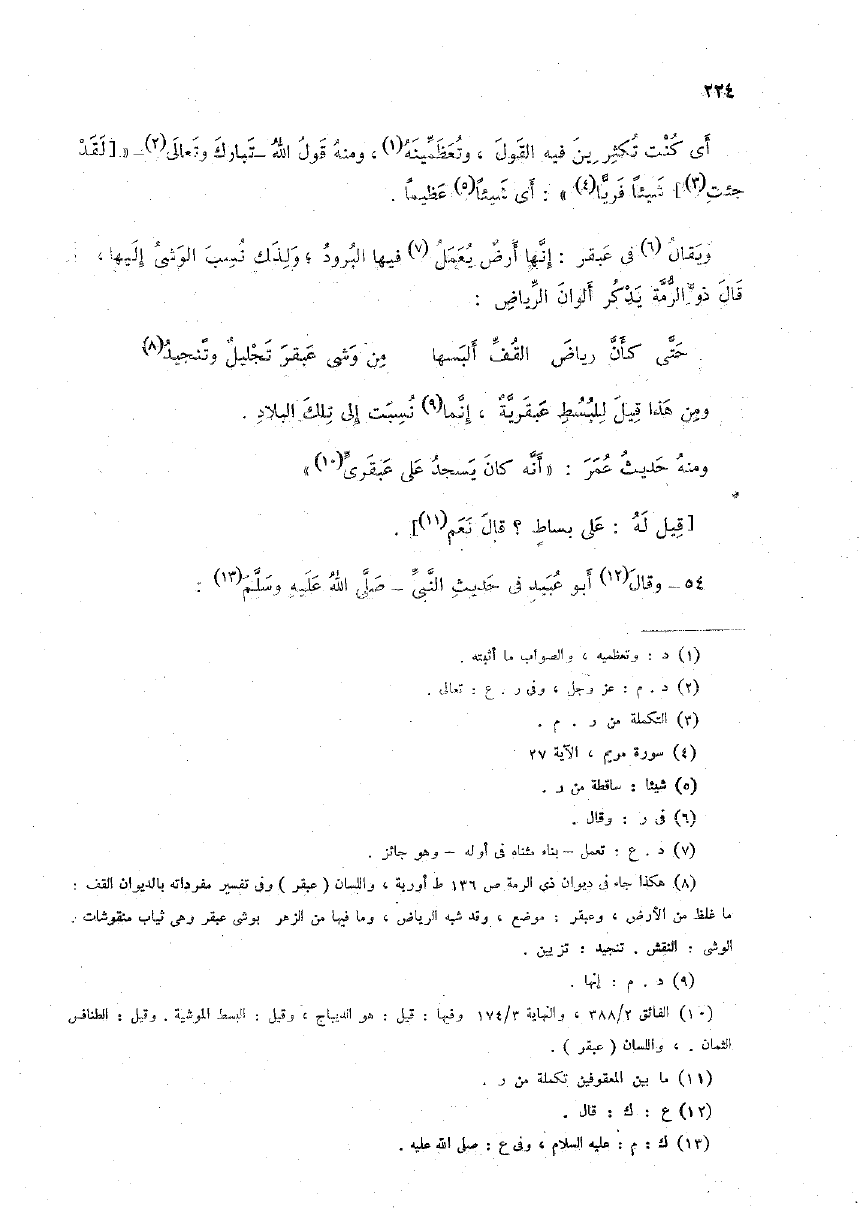 ٢٢٤
أَى كُنْت تُكثِرِينَ فيه القَولَ ، وتُعَظِّمِينَهُ(١) ، ومنهُ قَولُ اللهُ ـ تَبارك وتَعالَى(٢) ـ « [ لَقَدْ
جئتِ(٣) ] شَيئاً فَرِيًّا(٤) » : أَى شَيئاً(٥) عَظيماً .
ويَقالُ (٦) فى عَبقر : إِنَّها أَرضٌ يُعَمَلُ (٧) فيها البُرودُ ؛ وَلِذَلك نُسِبَ الوَشىُ إِلَيها ،
قَالَ ذو الرُّمَّة يَذْكُر أَلوانَ الرِّياضِ :
حَتَّى كأَنَّ رِياضَ القُفِّ أَلبَسها مِن وَشىِ عَبقرَ تَجْليلٌ وتَنجيدُ(٨)
ومِن هَذا قِيلَ لِلبُسُطِ عَبقَريَّةٌ ، إِنَّما(٩) نُسِبَت إِلى تِلكَ البلادِ .
ومنهُ حَديثُ عُمَرَ : « أَنَّه كانَ يَسجدُ عَلى عَبقَرىٍّ(١٠) »
[ قِيل لَهُ : عَلى بساطٍ ؟ قالَ نَعَم(١١) ] .
٥٤ ـ وقالَ(١٢) أَبو عُبَيدٍ فى حَديثِ النَّبىِّ ـ صَلَّى اللهُ عَلَيهِ وسَلَّمَ(١٣) :
(١) د : وتعظميه ، والصواب ما أثبته .
(٢) د . م : عز وجل ، وفى ر . ع : تعالى .
(٣) التكملة من ر . م .
(٤) سورة مريم ، الآية ٢٧
(٥) شيئا : ساقطة من ر .
(٦) فى ر : وقال .
(٧) د . ع : تعمل – بتاء مثناه فى أوله – وهو جائز .
(٨) هكذا جاء فى ديوان ذى الرمة ص ١٣٦ ط أوربة ، واللسان ( عبقر ) وفى تفسير مفرداته بالديوان القف :
ما غلظ من الأرض ، وعبقر : موضع ، وقد شبه الرياض ، وما فيها من الزهر بوشى عبقر وهى ثياب منقوشات .
الوشى : النقش . تنجيد : تزيين .
(٩) د . م : إنها .
(١٠) الفائق ٣٨٨/٢ ، والنهاية ١٧٤/٣ وفيها : قيل : هو الديباج ، وقيل : البسط الموشية . وقيل : الطنافس
الثمان . ، واللسان ( عبقر ) .
(١١) ما بين المعقوفين تكملة من ر .
(١٢) ع : ك : قال .
(١٣) ك : م : عليه السلام ، وفى ع : صلى الله عليه .